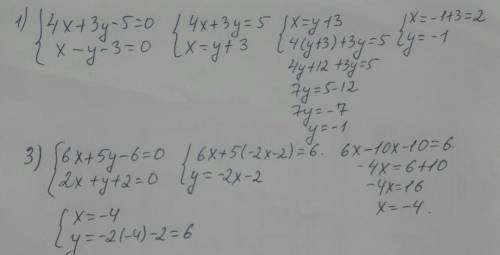 1) { 4x+3y-5=0
x-y-3=0
{ 4x+3y=5
x=y+3
{ x=y+3
4(y+3)+3y=5
4y+12+3y=5
7y=5-12
7y=-7
y=-1
{ x=-1+3=2
y=-1
3) { 6x+5y-6=0
2x+y+2=0
{ 6x+5(-2x-2)=6.
y=-2x-2
6x-10x-10=6.
-4x=6+10
-4x=16
x=-4.
{ x=-4
y=-2(-4)-2=6